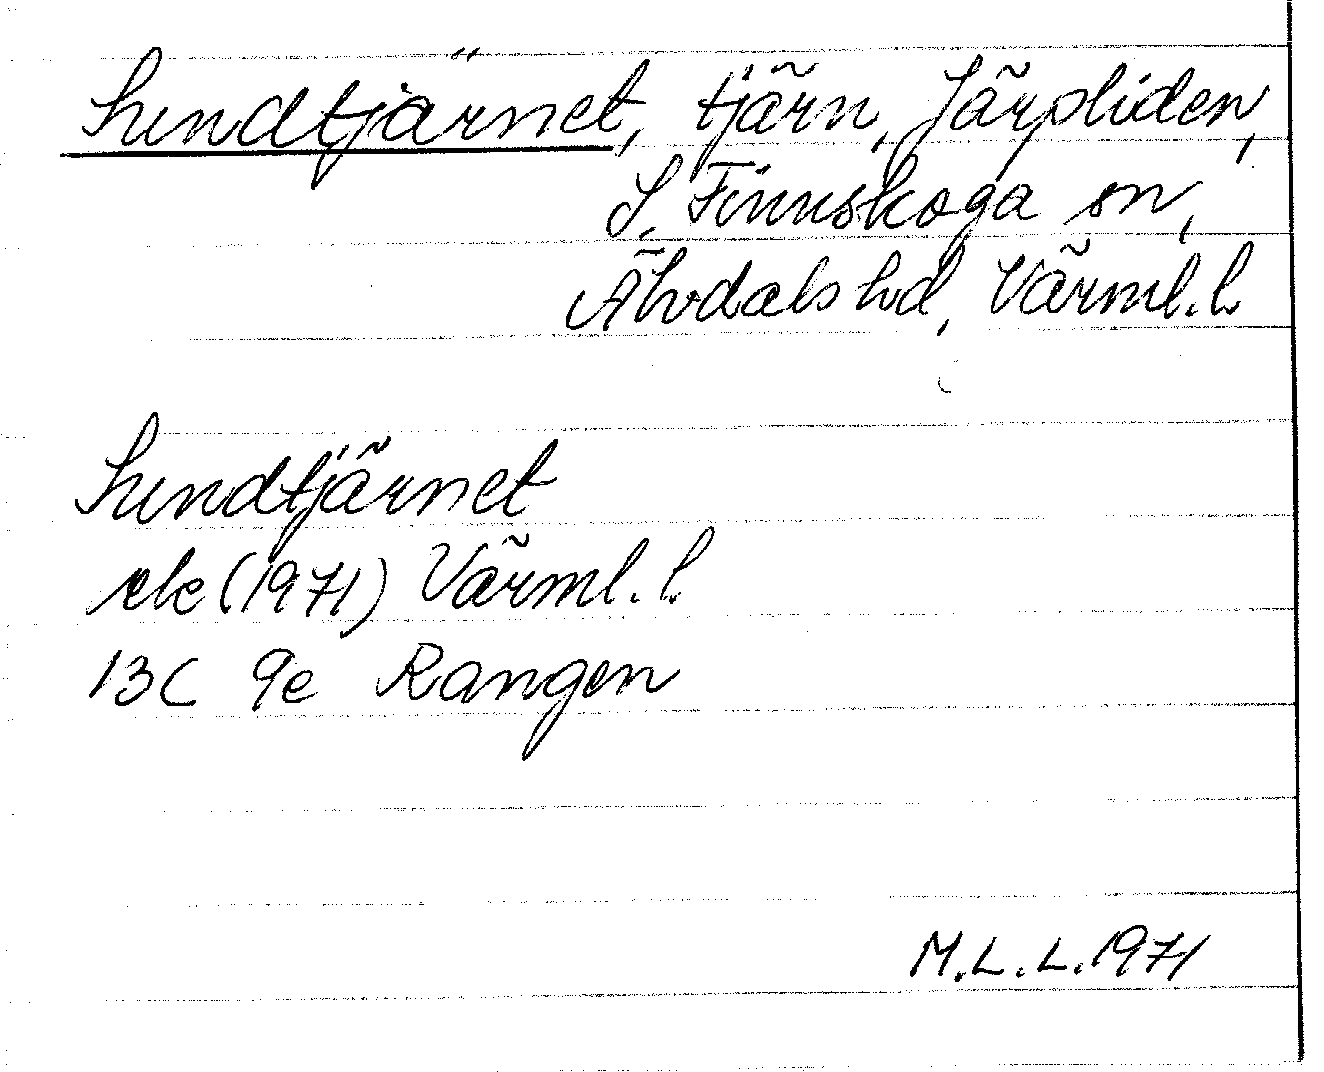 Sundtjärnet, tjärn, Järpliden,
S. Finnskoga sn,
Älvdals hd, Värml. l.
Sundtjärnet
ek (1971) Värml. l.
13C 9e Rangen
M.L.L. 1971